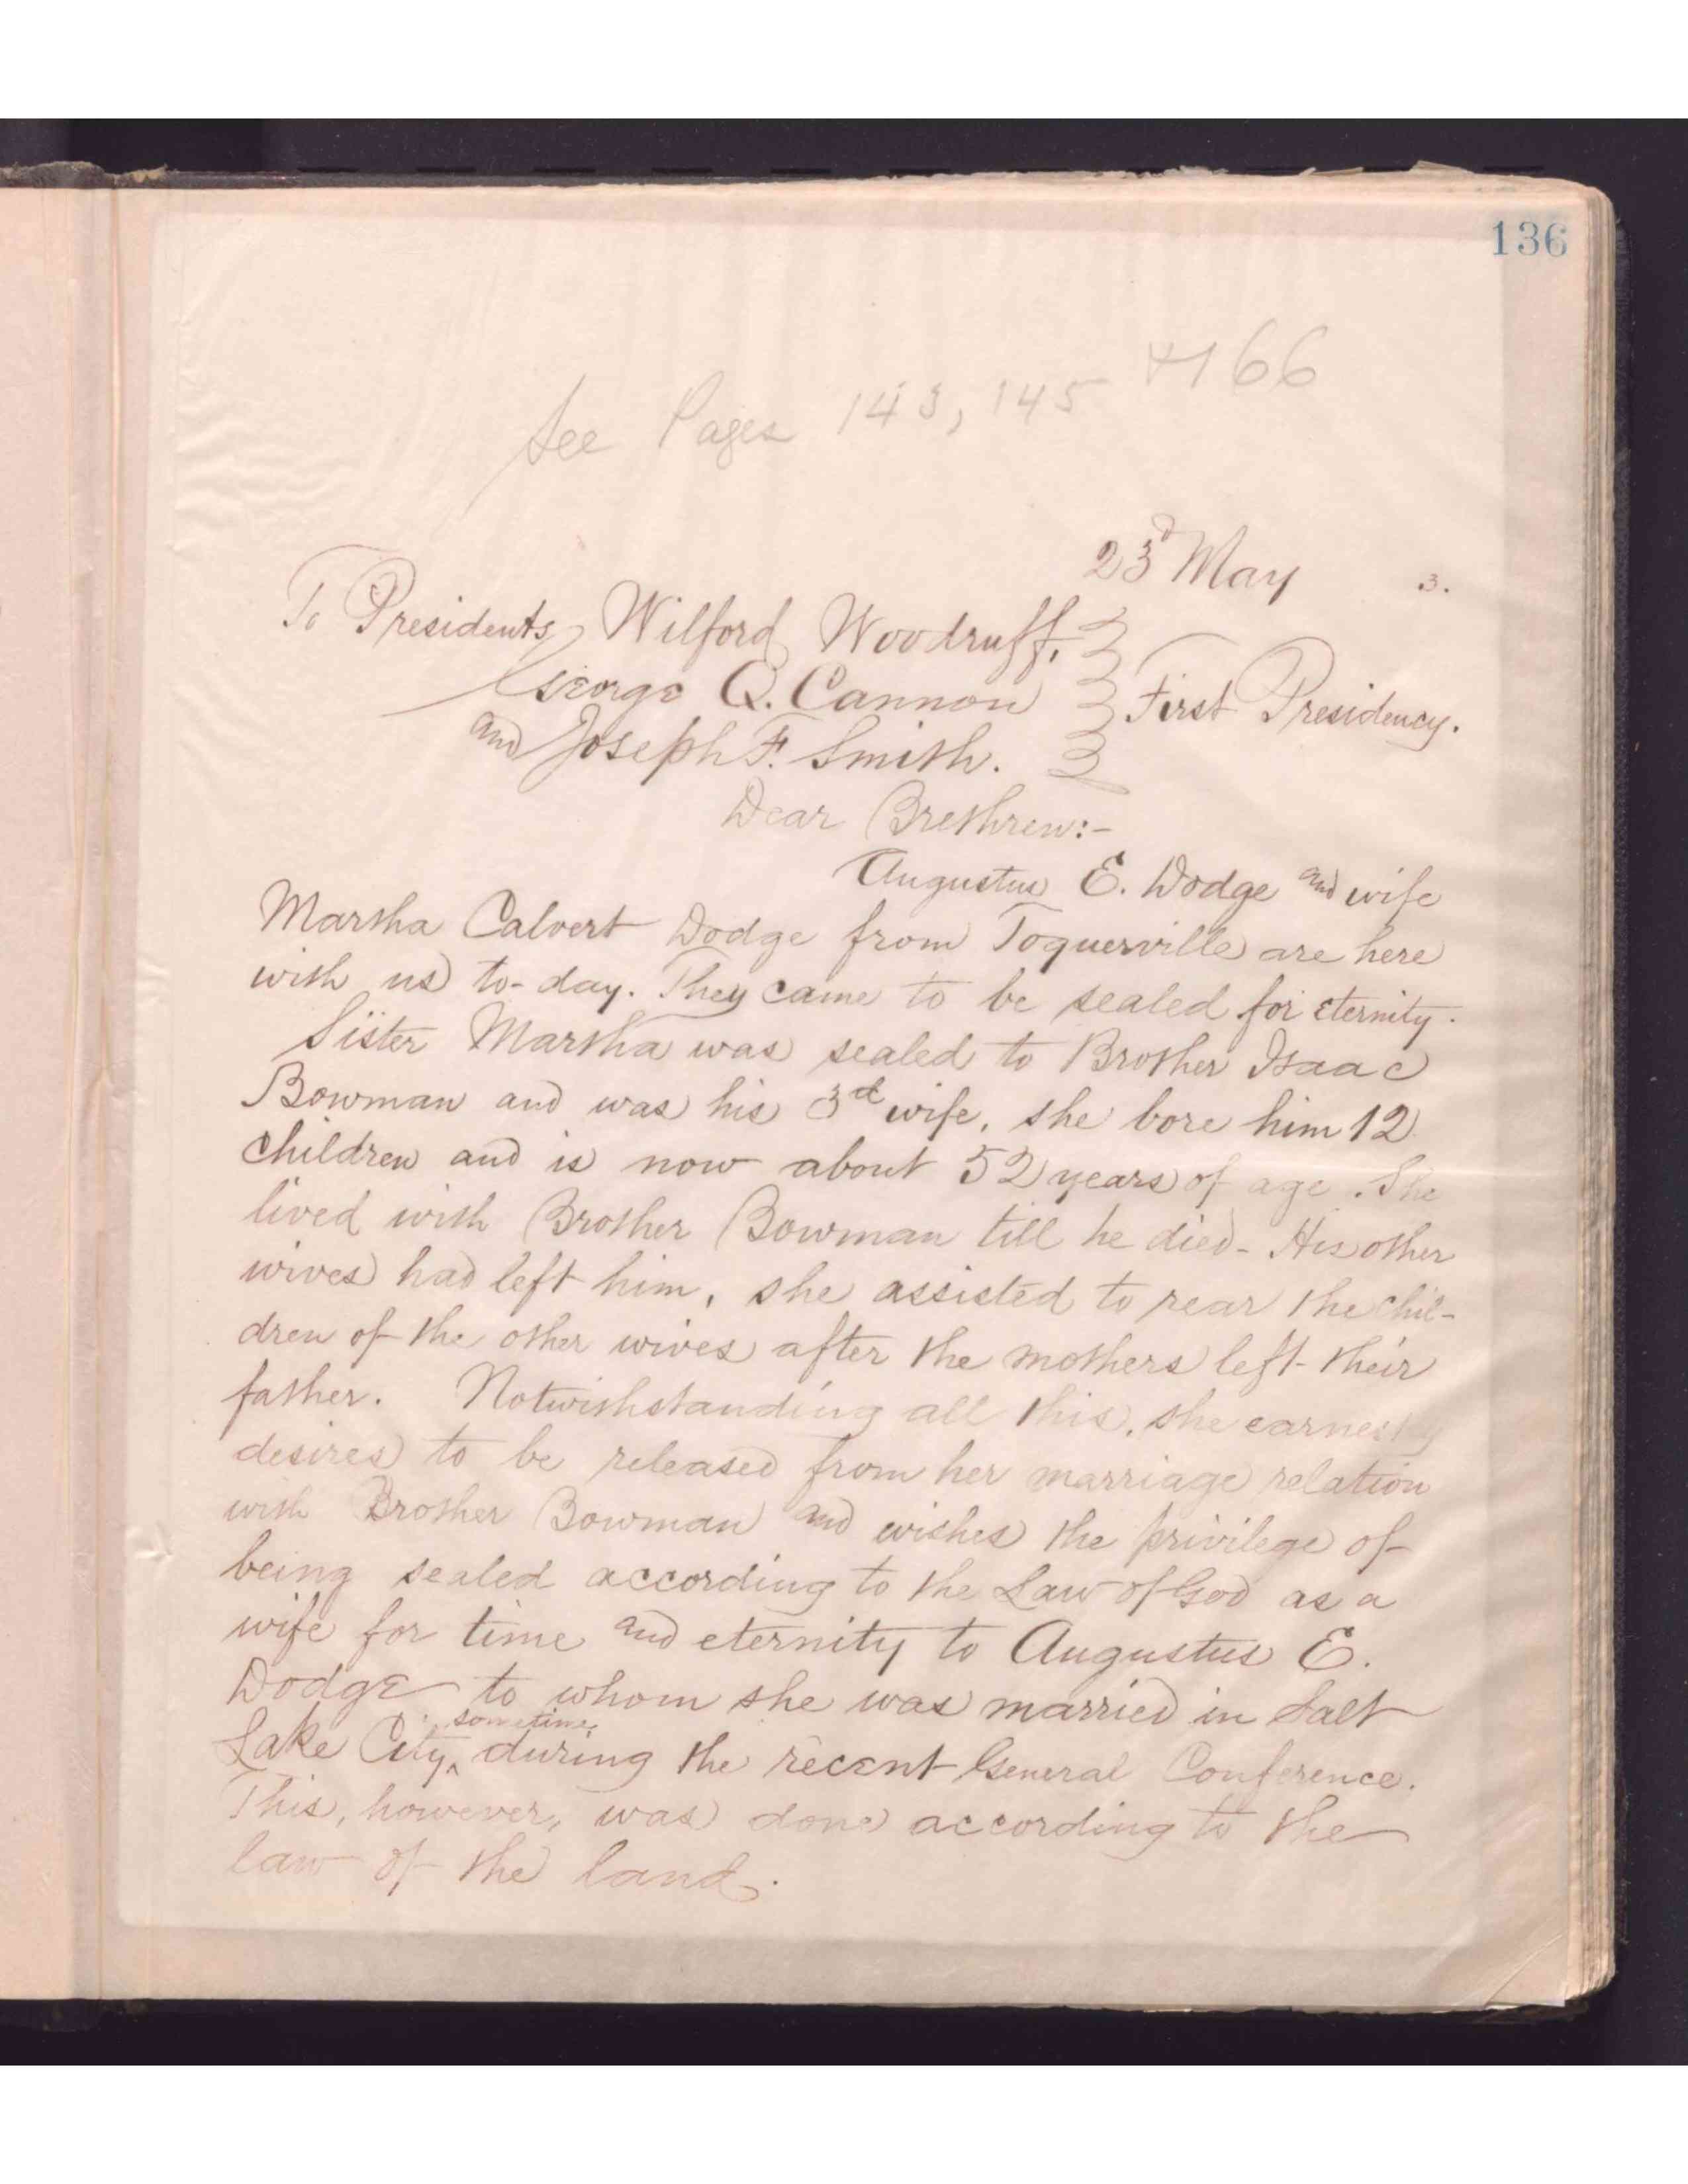 136
See Pages 143, 145 + 166
23d May 3.
To Presidents, Wilford Woodruff,
George Q. Cannon
First Presidency.
and Joseph F. Smith.
Dear Brethren:-
Augustus E. Dodge and wife
Martha Calvert Dodge from Toquerville are here
with us to-day. They came to be sealed for eternity.
Sister Martha was sealed to Brother Isaac
Bowman and was his 3d wife, she bore him 12
children and is now about 52 years of age. She
lived with Brother Bowman till he died - His other
wives had left him, she assisted to rear the chil-
dren of the other wives after the mothers left their
father. Notwithstanding all this, she earnestly
desires to be released from her marriage relation
with Brother Bowman and wishes the privilege of
being sealed according to the Law of God as a
wife for time and eternity to Augustus E.
Dodge to whom she was married in Salt
Lake City, sometime during the recent General Conference.
This, however, was done according to the
law of the land.